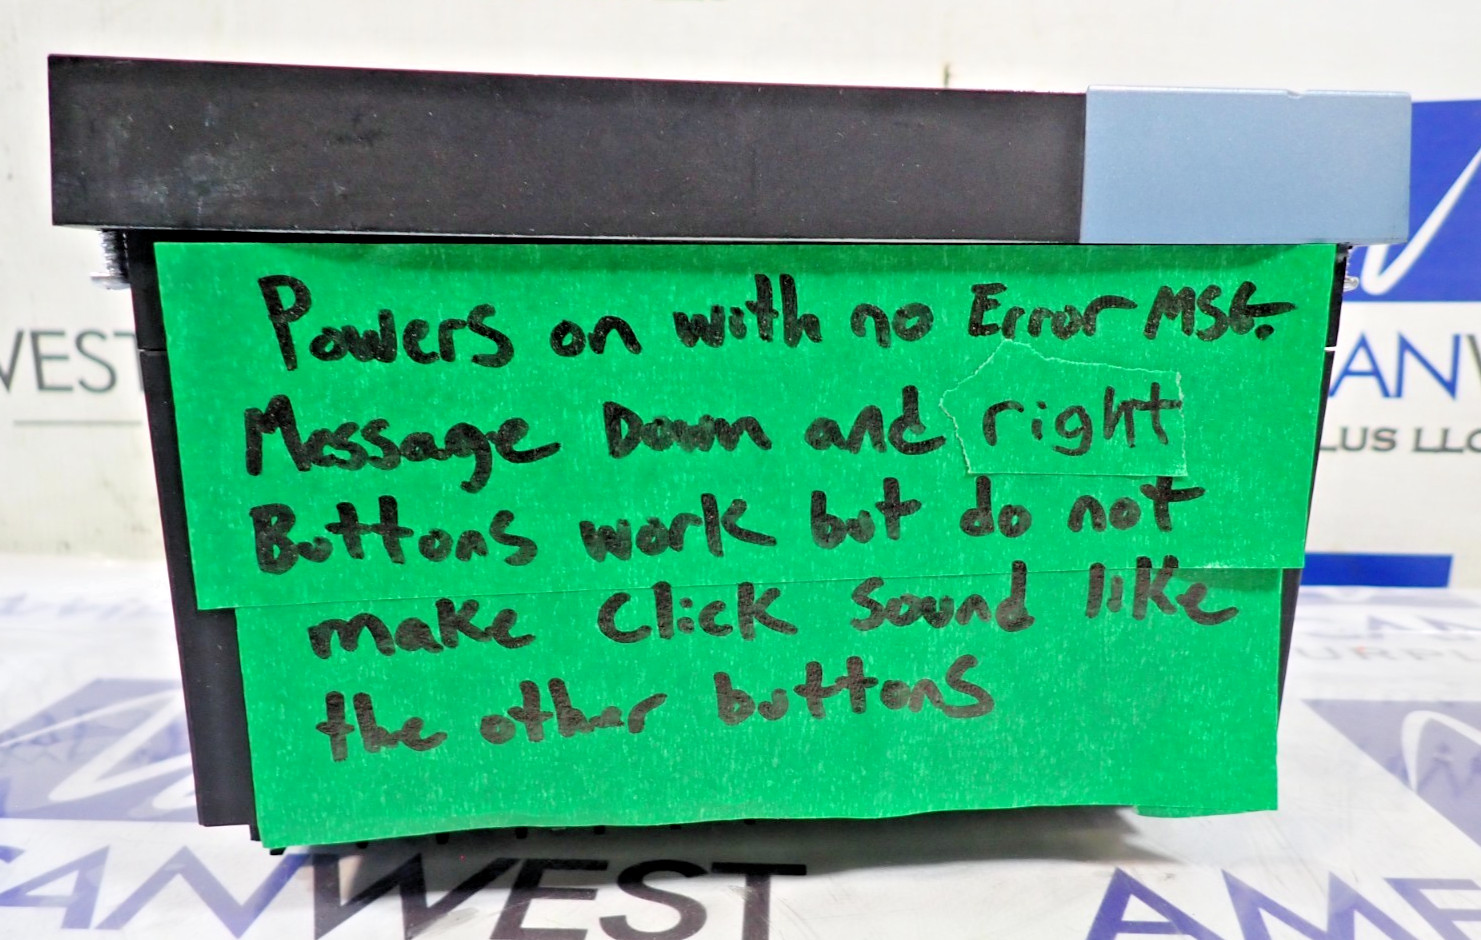 Powers on with no Error MSG.
Message Down and right
Buttons work but do not
make Click Sound like
the other buttons
WEST
ANW
LUS LLC
CAN
URPLU
CANWEST
AME